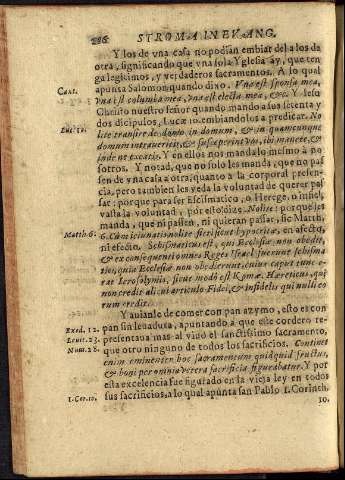 286. STROMA IN EVANG.
Y los de vna casa no podian embiar del a los da
otra, significando que vna sola Yglesia ay, que ten
ga legitimos, y verdaderos sacramentos. A lo qual
apunta Salomon quando dixo. Vna est sponsa mea,
Cant. vna est columba mea, vna est electa mea, &c. Y Iesu
Christo nuestro señor quando mando a sus setenta y
dos dicipulos, Lucæ 10. embiandolos a predicar. No
Luc. 10. lite transire de domo in domum, & in quamcunque
domum intraueritis, & susceperint vos, ibi manete, &
inde ne exeatis. Y en ellos nos mandalo mesmo à no
sotros. Y notad, que no solo les manda, que no pas
sen de vna casa a otra, quanto a la corporal presen-
cia, pero tambien les veda la voluntad de querer pas
sar: porque para ser Escismatico, o Herege, o infiel,
basta la voluntad, por esto dize, Nolite: porque les
manda, que ni passen, ni quieran passar, sic Matth.
Matth. 6. 6. Cum ieiunatis nolite fieri sicut hypocritæ, en afecto,
ni efecto. Schismaticus est, qui Ecclesiæ non obedit,
& ex consequenti omnes Reges Israel fuerunt schisma
tici, quia Ecclesiæ non obedierunt, cuius caput tunc e-
rat Ierosolymis, sicut modò est Romæ. Hæreticus, qui
non credit alicui articulo Fidei, & infidelis qui nulli eo
rum credit.
Y auianle de comer con pan azymo, esto es con
Exod. 12. pan sin leuadura, apuntando à que este cordero re-
Leuit. 23. presentaua mas al viuo el sanctissimo sacramento,
Num. 28. que otro ninguno de todos los sacrificios. Continet
enim eminenter hoc sacramentum quidquid fructus,
& boni per omnia vetera sacrificia figurabatur. Y por
esta excelencia fue figurado en la vieja ley en todos
1. Cor. 10. sus sacrificios, a lo qual apunta san Pablo 1. Corinth.
10.